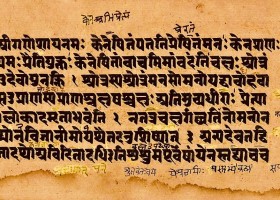 श्रीगणेशायनमः॥ केनेषितंपततिप्रेषितंमनः॥ केनप्राणः
थमः प्रैतियुक्तः॥ केनेषितांवाचमिमांवदंतिचक्षुः श्रो
उदेवोयुनक्ति॥ श्रोत्रस्यश्रोत्रंमनसोमनोयद्वाचोहवाचं
उप्राणस्यप्राणश्चक्षुषश्चक्षुः अतिमुच्यधीराः॥ प्रेत्या
ल्लोकादमृताभवंति॥ नतत्रचक्षुर्गच्छतिनवाग्गच्छतिनोमनोन
द्मोनविजानीमोयथैतदनुशिष्यात्॥ अन्यदेवतद्वि
तादथोअविदितादधि॥ इतिशुश्रुमपूर्वेषांयेनस्तद्व्याचच